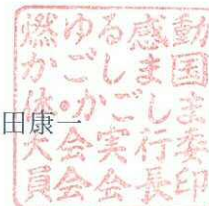 燃ゆる感動
かごしま国
体・かごしま
大会実行委
員会会長印
田康一